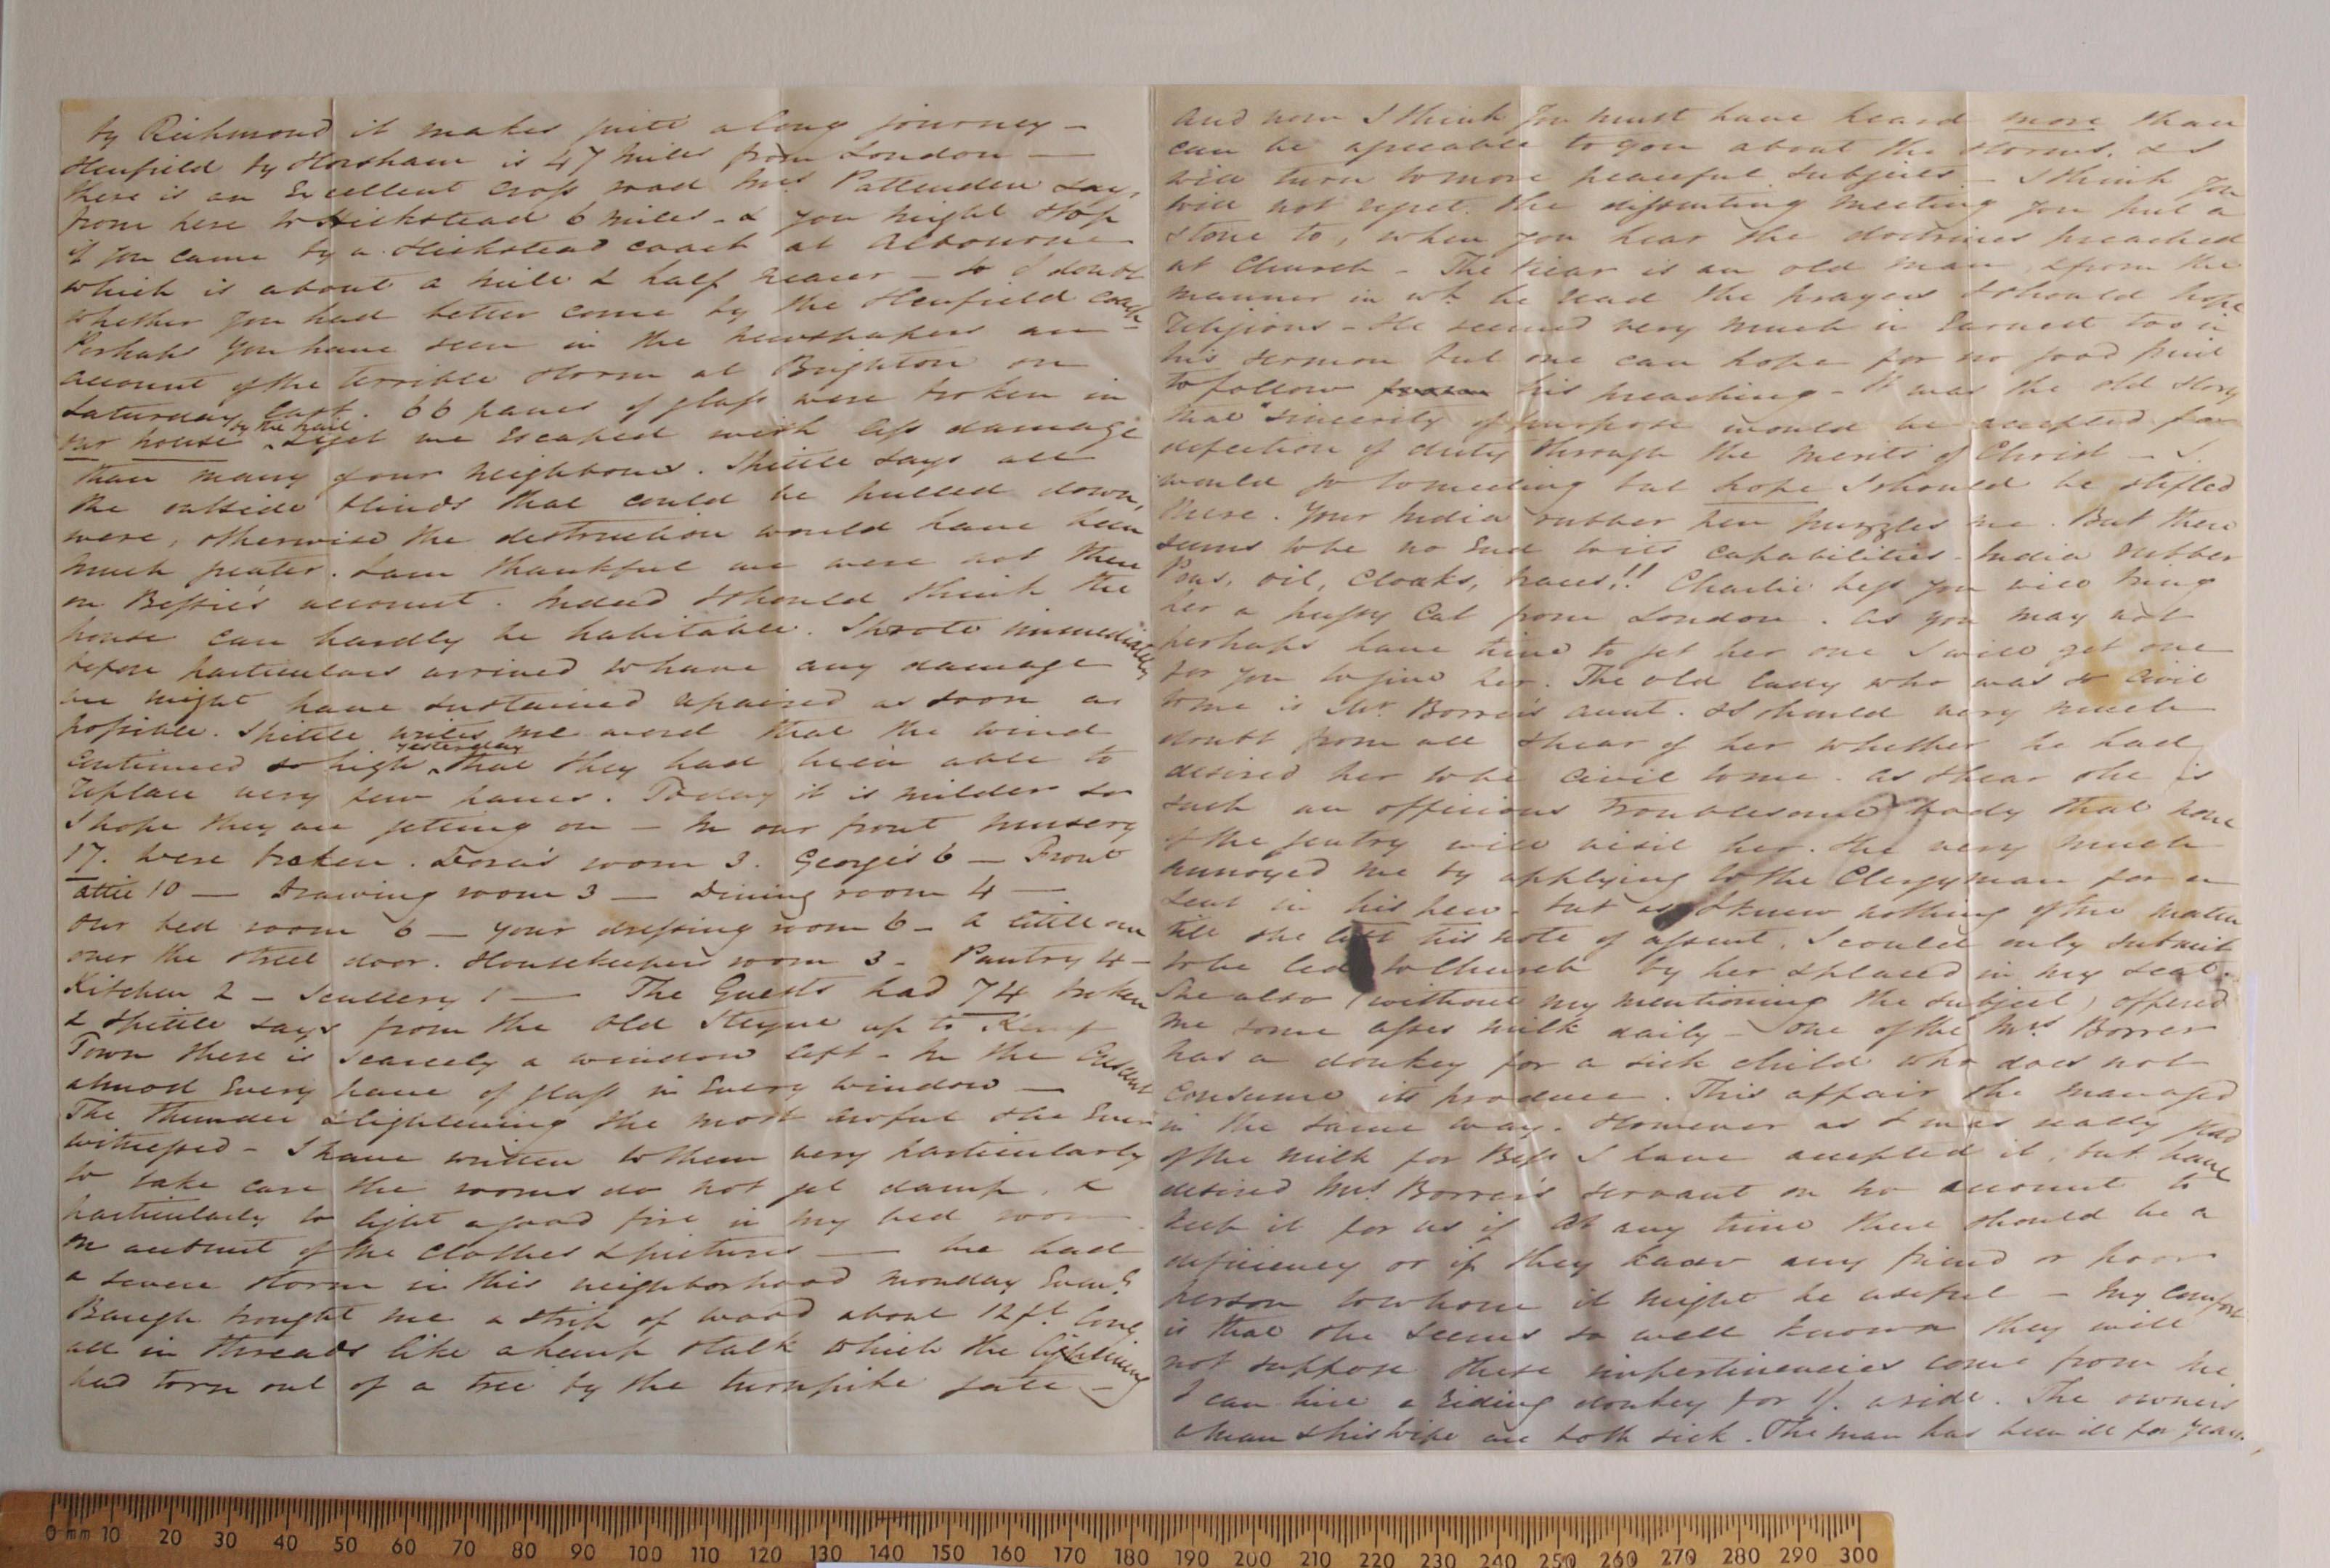 by Richmond it makes quite a long journey -
Henfield by Horsham is 47 miles from London -
there is an Excellent cross road Mrs Pattenden says
from here to Hickstead 6 miles - & you might stop
if you came by a Hickstead coach at Albourne
which is about a mile & half nearer - so I doubt
whether you had better come by the Henfield coach -
Perhaps you have seen in the newspapers an
account of the terrible storm at Brighton on
Saturday last. 66 panes of glass were broken in
our house by the hail & yet we escaped with less damage
than many of our neighbours. Spittle says all
the outside blinds that could be pulled down,
were, otherwise the destruction would have been
much greater. I am thankful we were not there
on Bessie's account. Indeed I should think the
house can hardly be habitable. I wrote immediately
before particulars arrived to have any damage
we might have sustained repaired as soon as
possible. Spittle writes me word that the wind
continued so high yesterday that they had been able to
replace very few panes. Today it is milder so
I hope they are getting on - In our front nursery
17. were broken. Dora's room 3. George's 6 - Front
attic 10 - Drawing room 3 - Dining room 4 -
our bed room 6 - your dressing room 6 - a little one
over the street door. Housekeepers room 3 - Pantry 4 -
Kitchen 2 - Scullery 1 - The Guests had 74 broken
& Spittle says from the Old Steyne up to Kemp
Town there is scarcely a window left - In the Crescent
almost Every pane of glass in Every window -
The thunder & lightening the most awful she Ever
witnessed - I have written to them very particularly
to take care the rooms do not get damp, &
particularly to light a good fire in my bed room
on account of the clothes & pictures - We had
a severe storm in this neighborhood Monday Eveng
Baugh brought me a strip of wood about 12 ft. long
all in threads like a hemp stalk which the lightening
had torn out of a tree by the turnpike gate -
And now I think you must have heard more than
can be agreeable to you about the storms, & I
will turn to more peaceful subjects - I think you
will not regret the dissenting meeting you put a
stone to, when you hear the doctrines preached
at Church - The Vicar is an old man, & from the
manner in wh. he read the prayers I should hope
religious - He seemed very much in Earnest too in
his sermon but one can hope for no good fruit
to follow his preaching - It was the old story
that "sincerity of purpose would be accepted for
defection of duty through the merits of Christ - I
would go to meeting but hope I should be stifled
there. Your India rubber pen puzzles me. But there
seems to be no End to its capabilities - India rubber
Pens, oil, cloaks, panes!! Charlie begs you will bring
her a pussy Cat from London. As you may not
perhaps have time to get her one I will get one
for you to give her. The old lady who was so civil
to me is Mr. Borrer's aunt. I should very much
doubt from all I hear of her whether he had
desired her to be civil to me. As I hear she is
such an officious troublesome body that none
of the gentry will visit her. She very much
annoyed me by applying to the Clergyman for a
seat in his pew - but as I knew nothing of the matter
till she left his note of assent, I could only submit
to be led to Church by her & placed in my seat.
She also (without my mentioning the subject) offered
me some asses milk daily - one of the Mrs Borrer
has a donkey for a sick child who does not
consume its produce. This affair she managed
in the same way. However as I was really glad
of the milk for Bess I have accepted it, but have
desired Mrs Borrer's servant on no account to
keep it for us if at any time there should be a
deficiency or if they knew any friend or poor
person to whom it might be useful - My comfort
is that she seems so well known they will
not suppose these impertinencies come from me
I can hire a riding donkey for 1/. a ride. The owners
a man & his wife are both sick. The man has been ill for years.
0 mm 10 20 30 40 50 60 70 80 90 100 110 120 130 140 150 160 170 180 190 200 210 220 230 240 250 260 270 280 290 300